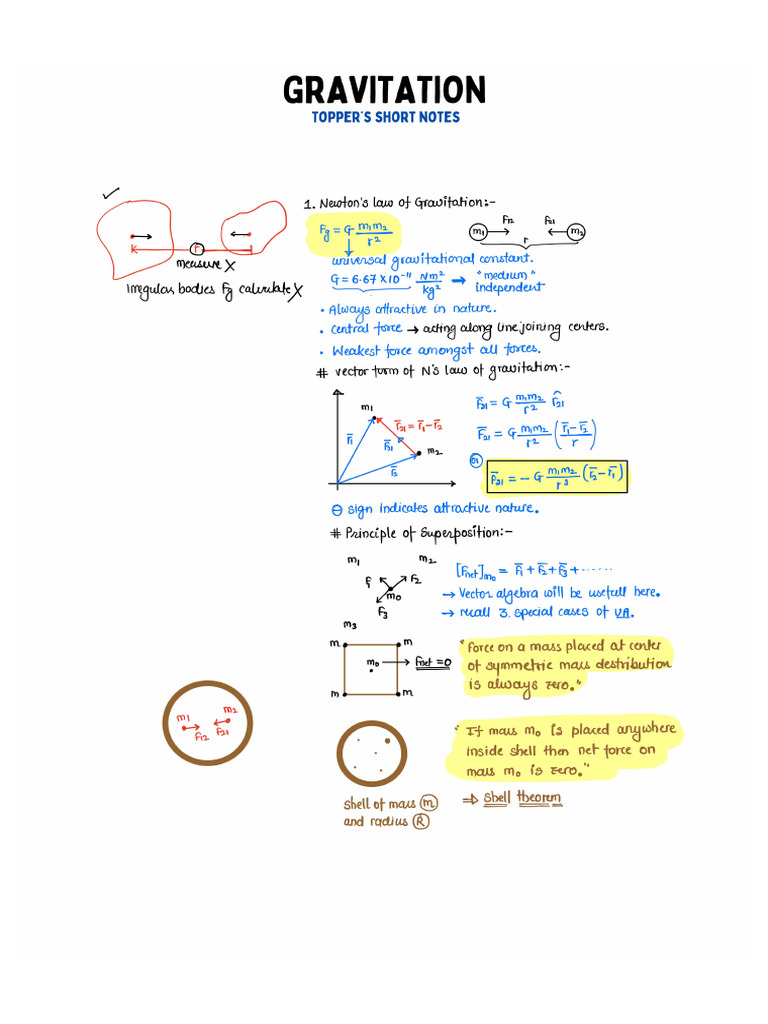 GRAVITATION
TOPPER'S SHORT NOTES
1. Newton's law of Gravitation:-
Fg = G m1m2/r²
m1 F12 F21 m2
r
r
measure X
Irregular bodies Fg calculate X
universal gravitational constant.
G = 6.67 × 10⁻¹¹ Nm²/kg² → "medium" independent
• Always attractive in nature.
• Central force → acting along line joining centers.
• Weakest force amongst all forces.
# vector form of N's law of gravitation:-
m1
r̄1
r̄21 = r̄1 - r̄2
F̄21
m2
r̄2
F̄21 = G m1m2/r² r̂21
F̄21 = G m1m2/r² (r̄1 - r̄2/r)
or
F̄21 = - G m1m2/r³ (r̄2 - r̄1)
⊖ sign indicates attractive nature.
# Principle of Superposition:-
m1 m2
F1 F2
m0
F3
m3
[Fnet]m0 = F̄1 + F̄2 + F̄3 + ......
→ Vector algebra will be usefull here.
→ recall 3 special cases of VA.
m m
m0 → Fnet = 0
m m
"Force on a mass placed at center
of symmetric mass destribution
is always zero."
m1 m2
F12 F21
"If mass m0 is placed anywhere
inside shell then net force on
mass m0 is zero."
shell of mass m
and radius R
⇒ Shell theorem